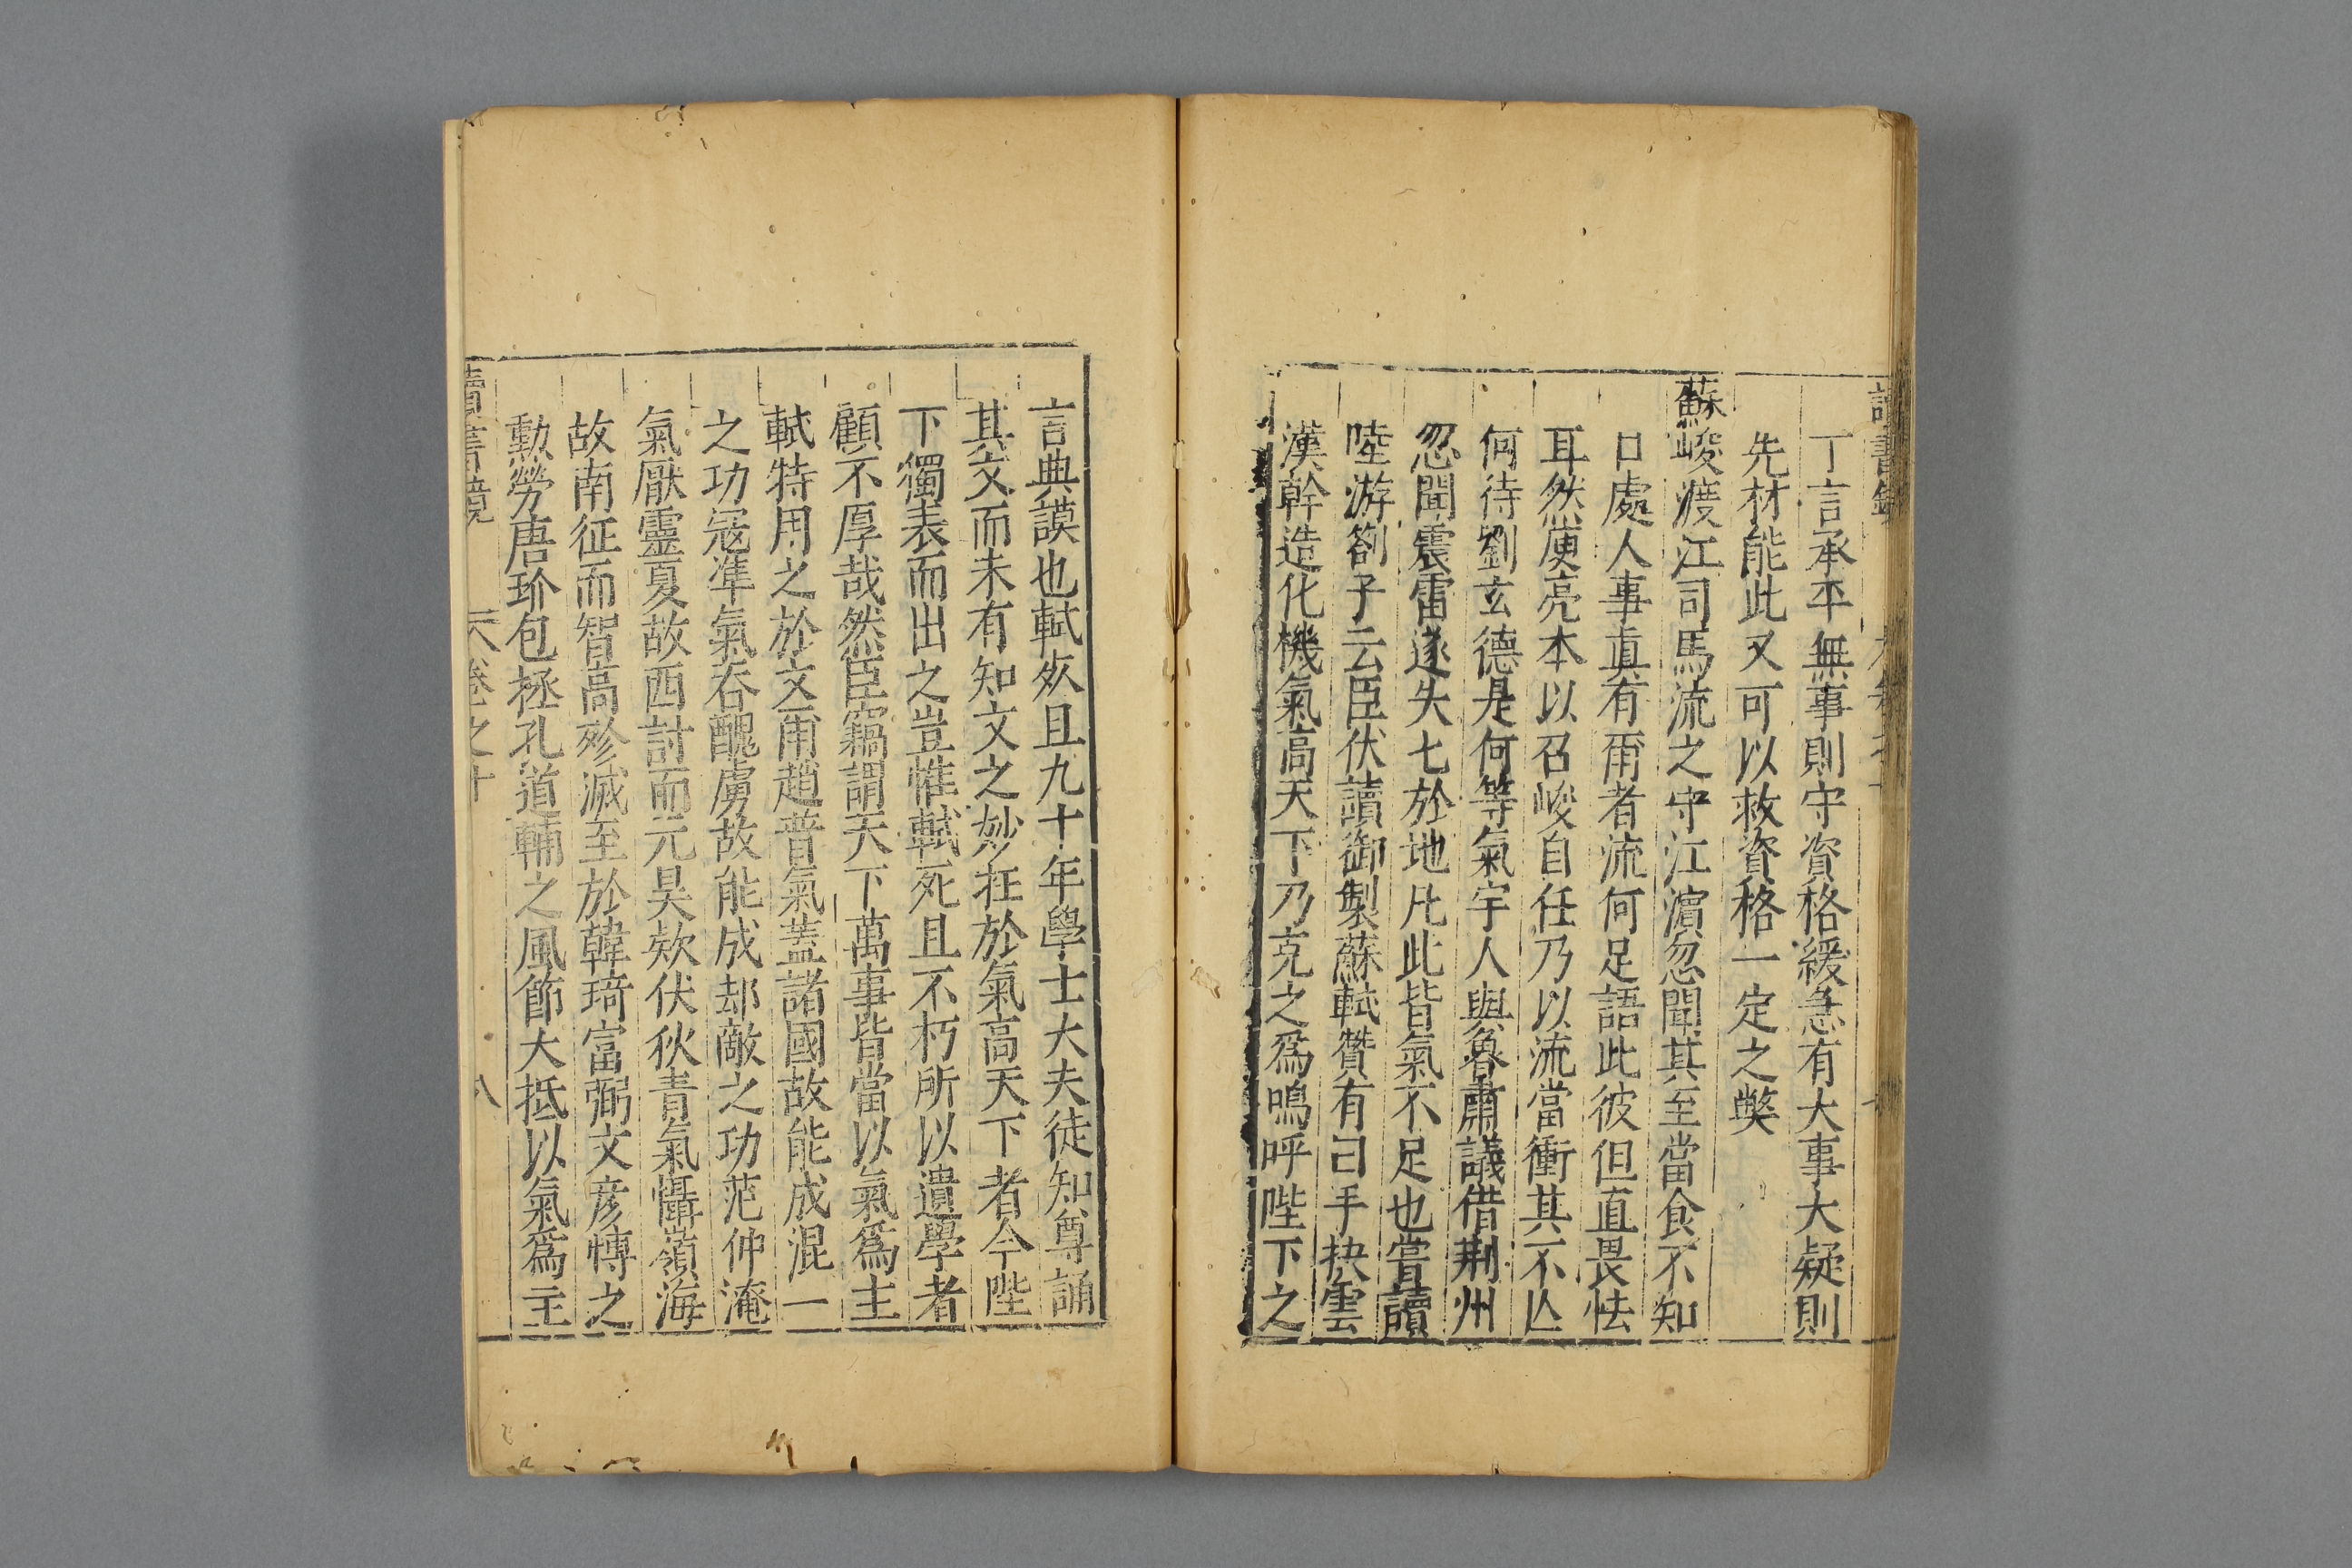 丁言承平無事則守資格緩急有大事大疑則
先材能此又可以救資格一定之獘
蘇峻渡江司馬流之守江濵忽聞其至當食不知
口處人事真有爾者流何足語此彼但直畏怯
耳然庾亮本以召峻自任乃以流當衝其不亾
何待劉玄德是何等氣宇人與魯肅議借荆州
忽聞震雷遂失七於地凡此皆氣不足也嘗讀
陸游劄子云臣伏讀御製蘇軾贊有曰手抉雲
漢幹造化機氣高天下乃克之爲嗚呼陛下之
言典謨也軾歿且九十年學士大夫徒知尊誦
其文而未有知文之妙在於氣高天下者今陛
下獨表而出之豈惟軾死且不朽所以遺學者
顧不厚哉然臣竊謂天下萬事皆當以氣爲主
軾特用之於文甭趙普氣蓋諸國故能成混一
之功冦準氣吞醜虜故能成却敵之功范仲淹
氣厭靈夏故西討而元昊欸伏狄青氣懾嶺海
故南征而智高殄滅至於韓琦富弼文彦博之
勳勞唐玠包拯孔道輔之風節大抵以氣爲主
讀書鏡 卷之十 八